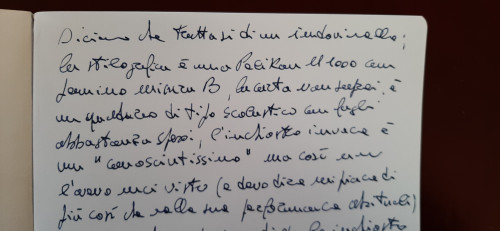 Diciamo che trattasi di un indovinello;
la stilografica è una Pelikan M1000 con
pennino misura B, la carta non saprei, è
un quaderno di tipo scolastico con fogli
abbastanza spessi, l'inchiostro invece è
un "conosciutissimo" ma così non
l'avevo mai visto (e devo dire mi piace di
più così che nella sua performance abituale)
l'inchiostro